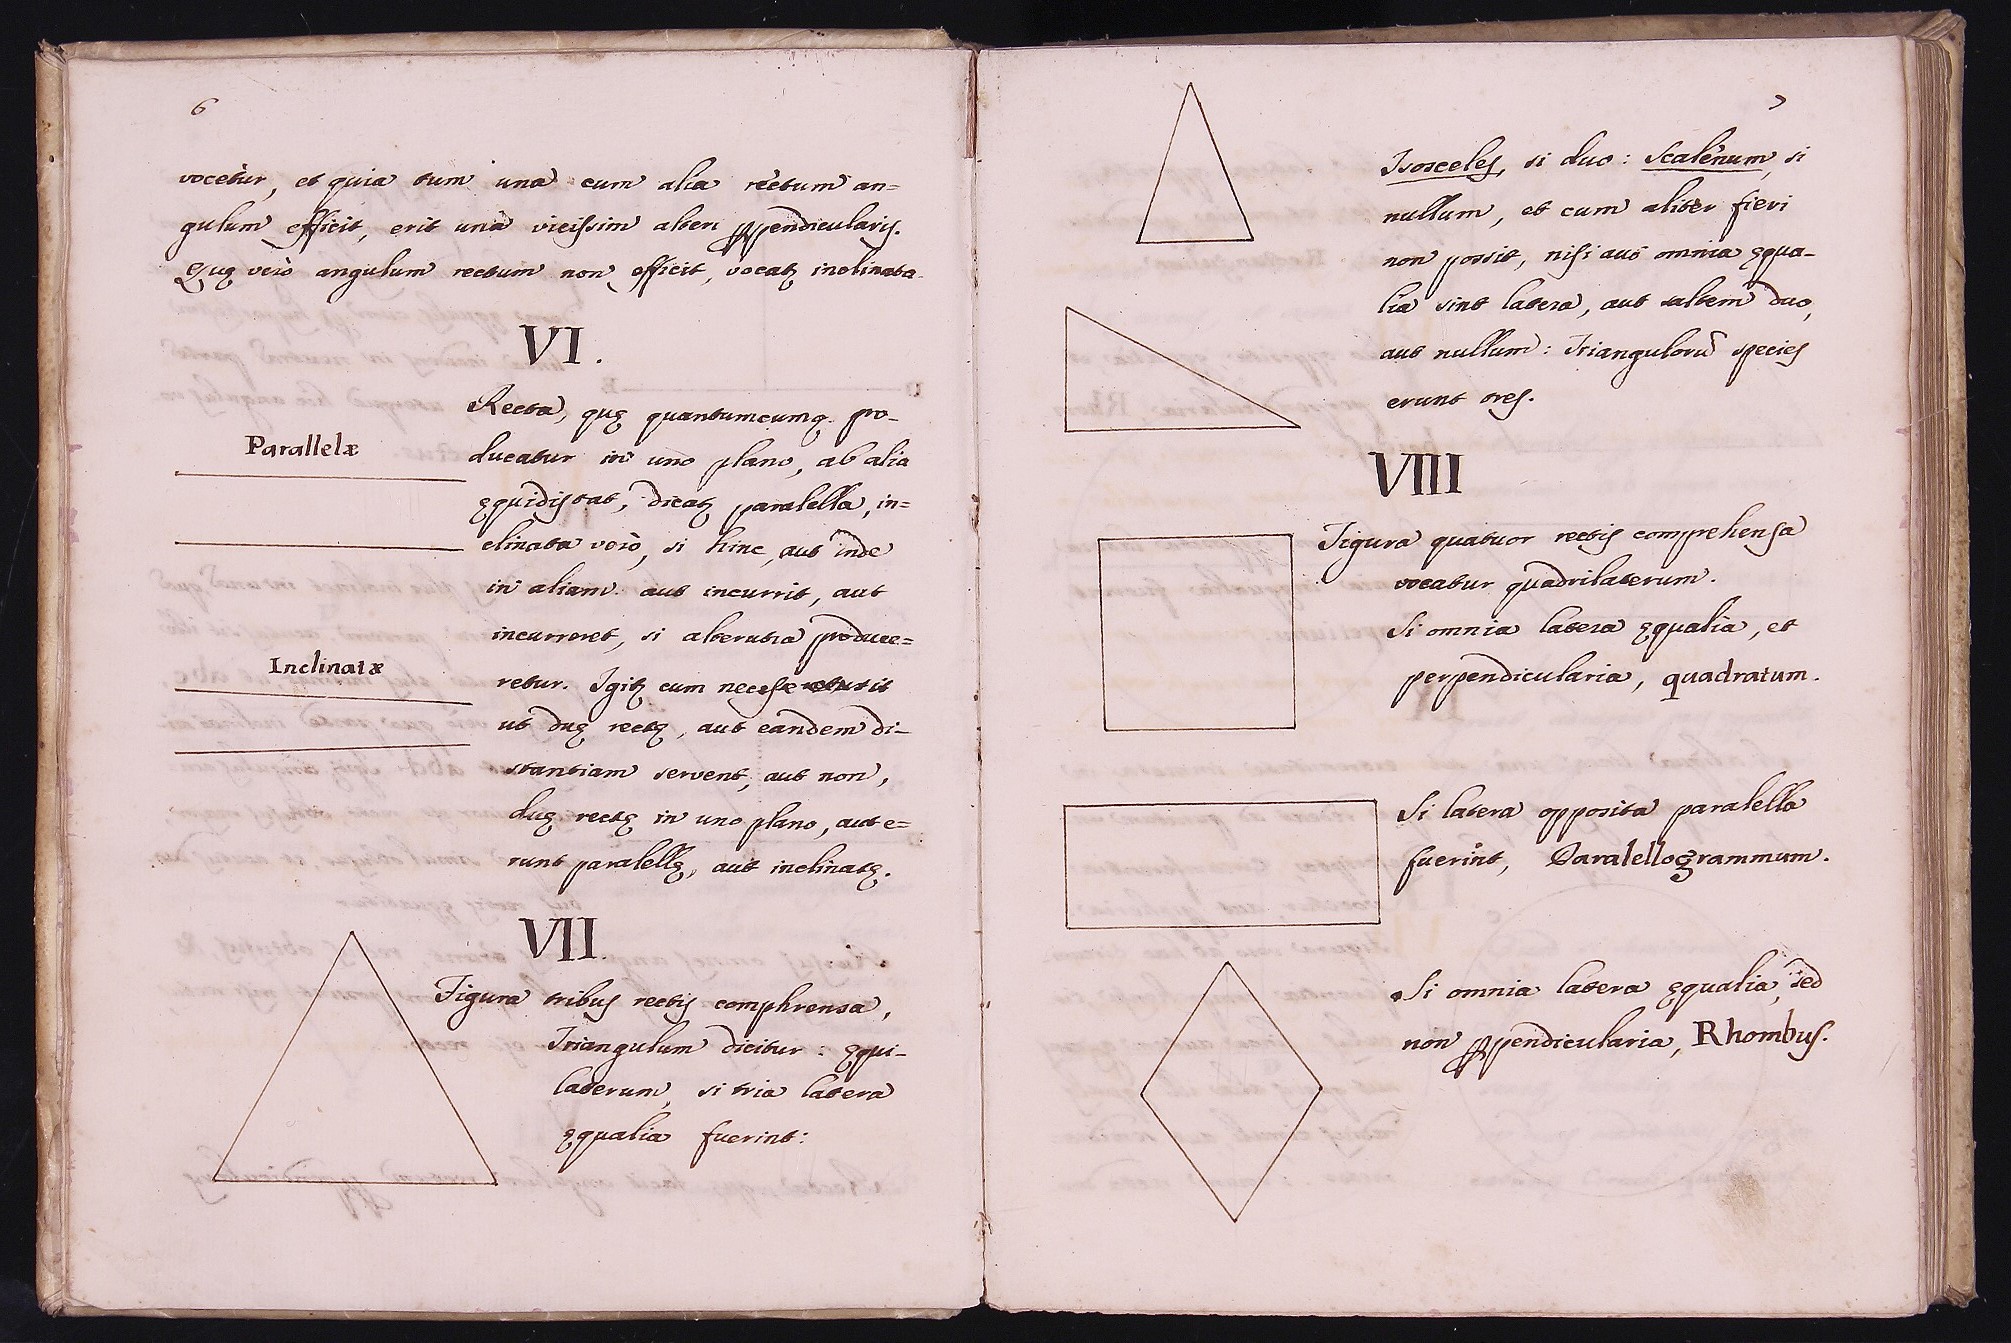 6
vocetur, et quia tum una cum alia rectum an=
gulum efficit, erit una vicissim alteri ppendicularis.
Quę verò angulum rectum non efficit, vocatꝫ inclinata.
VI.
Recta, quę quantumcumqꝫ pro-
ducatur in uno plano, ab alia
ęquidistat, dicatꝫ paralella, in=
clinata verò, si hinc, aut inde
in aliam aut incurrit, aut
incurreret, si alterutra produce=
retur. Igitꝫ cum necesse sit
ut duę rectę, aut eandem di-
stantiam servent, aut non,
duę rectę in uno plano, aut e=
runt paralellę, aut inclinatę.
Parallelæ
Inclinatæ
VII.
Figura tribus rectis comphrensa,
Triangulum dicitur: ęqui-
laterum, si tria latera
ęqualia fuerint:
7
Isosceles, si duo: Scalenum, si
nullum, et cum aliter fieri
non possit, nisi aut omnia ęqua-
lia sint latera, aut saltem duo,
aut nullum: Triangulorũ species
erunt tres.
VIII
Figura quatuor rectis comprehensa
vocatur quadrilaterum.
Si omnia latera ęqualia, et
perpendicularia, quadratum.
Si latera opposita paralella
fuerint, Paralellogrammum.
Si omnia latera ęqualia, sed
non ppendicularia, Rhombus.